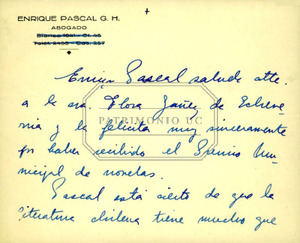 ENRIQUE PASCAL G. H.
ABOGADO
Enrique Pascal saluda atte.
a la sra. Flora Yañez de Echeve-
rria y la felicita muy sinceramente
por haber recibido el Premio Mu-
nicipal de novelas.
Pascal está cierto de que la
literatura chilena tiene mucho que
PATRIMONIO UC